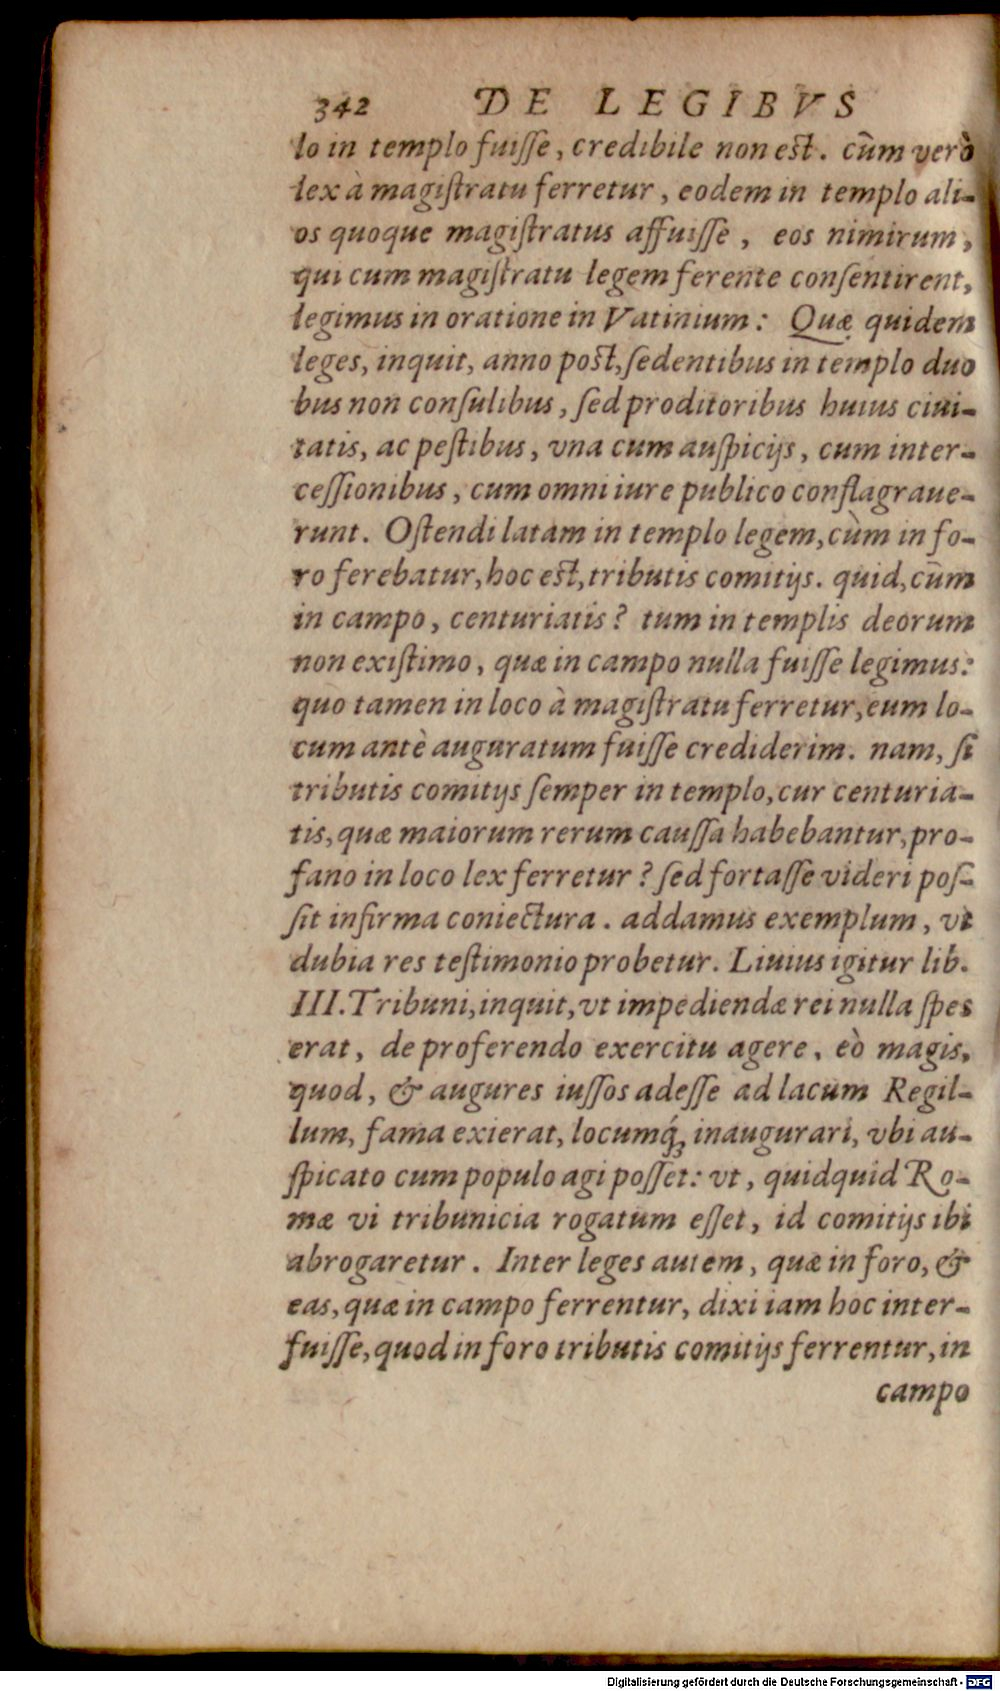 342 DE LEGIBVS
lo in templo fuiſſe, credibile non est. cũm verò
lex à magiſtratu ferretur, eodem in templo ali-
os quoque magiſtratus affuiſſe, eos nimirum,
qui cum magiſtratu legem ferente conſentirent,
legimus in oratione in Vatinium: Quæ quidem
leges, inquit, anno post, ſedentibus in templo duo
bus non conſulibus, ſed proditoribus huius ciui-
tatis, ac peſtibus, vna cum auſpicijs, cum inter-
ceſſionibus, cum omni iure publico conflagraue-
runt. Oſtendi latam in templo legem, cùm in fo-
ro ferebatur, hoc est, tributis comitijs. quid, cũm
in campo, centuriatis? tum in templis deorum
non exiſtimo, quæ in campo nulla fuiſſe legimus:
quo tamen in loco à magiſtratu ferretur, eum lo-
cum antè auguratum fuiſſe crediderim. nam, ſi
tributis comitijs ſemper in templo, cur centuria-
tis, quæ maiorum rerum cauſſa habebantur, pro-
fano in loco lex ferretur? ſed fortaſſe videri poſ-
ſit infirma coniectura. addamus exemplum, vt
dubia res teſtimonio probetur. Liuius igitur lib.
III. Tribuni, inquit, vt impediendæ rei nulla ſpes
erat, de proferendo exercitu agere, eò magis,
quod, & augures iuſſos adeſſe ad lacum Regil-
lum, fama exierat, locumq́; inaugurari, vbi au-
ſpicato cum populo agi poſſet: vt, quidquid Ro-
mæ vi tribunicia rogatum eſſet, id comitijs ibi
abrogaretur. Inter leges autem, quæ in foro, &
eas, quæ in campo ferrentur, dixi iam hoc inter-
fuiſſe, quod in foro tributis comitijs ferrentur, in
campo
Digitalisierung gefördert durch die Deutsche Forschungsgemeinschaft - DFG